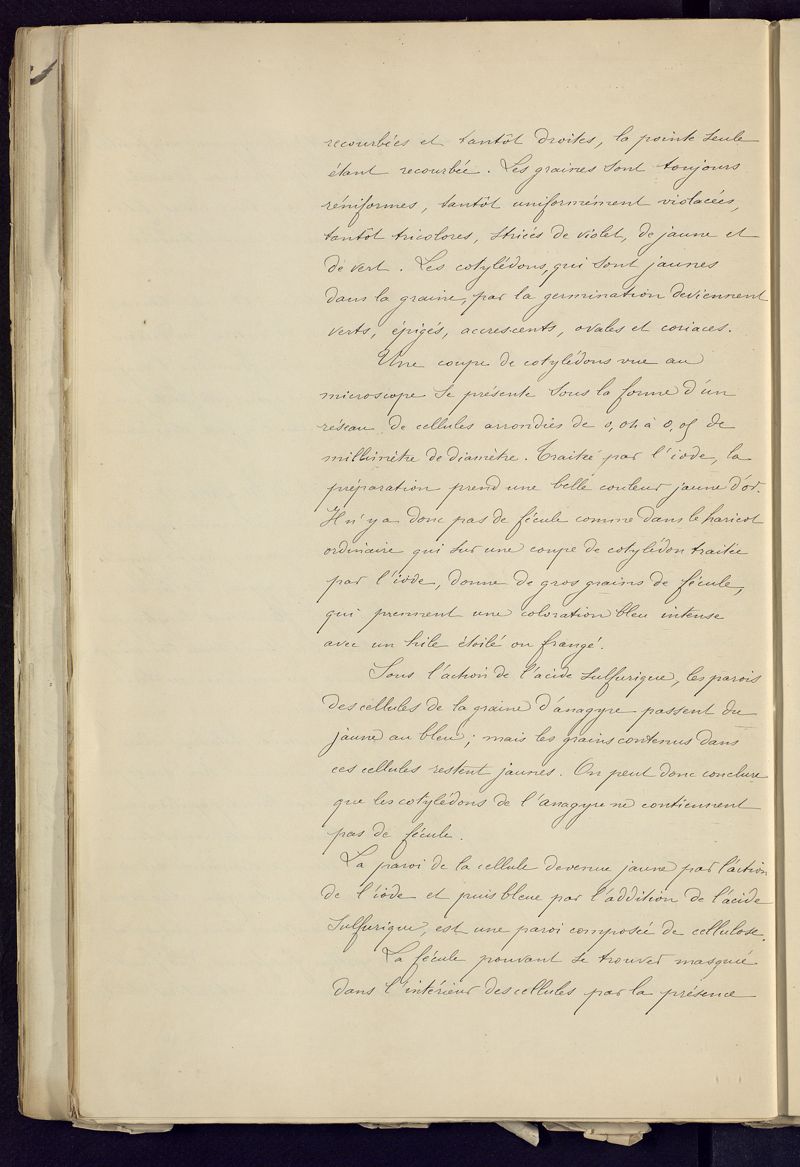 recourbées et tantôt droites, la pointe seule
étant recourbée. Les graines sont toujours
réniformes, tantôt uniformément violacées,
tantôt tricolores, striées de violet, de jaune et
de vert. Les cotylédons, qui sont jaunes
dans la graine, par la germination deviennent
verts, épigés, accrescents, ovales et coriaces.
Une coupe de cotylédons vue au
microscope se présente sous la forme d'un
réseau de cellules arrondies de 0,04 à 0,05 de
millimètre de diamètre. Traitée par l'iode, la
préparation prend une belle couleur jaune d'or.
Il n'y a donc pas de fécule comme dans le haricot
ordinaire qui sur une coupe de cotylédon traitée
par l'iode, donne de gros grains de fécule,
qui prennent une coloration bleu intense
avec un hile étoilé ou frangé.
Sous l'action de l'acide sulfurique, les parois
des cellules de la graine d'anagyre passent du
jaune au bleu; mais les grains contenus dans
ces cellules restent jaunes. On peut donc conclure
que les cotylédons de l'anagyre ne contiennent
pas de fécule.
La paroi de la cellule devenue jaune par l'action
de l'iode et puis bleue par l'addition de l'acide
sulfurique, est une paroi composée de cellulose.
La fécule pouvant se trouver masquée
dans l'intérieur des cellules par la présence